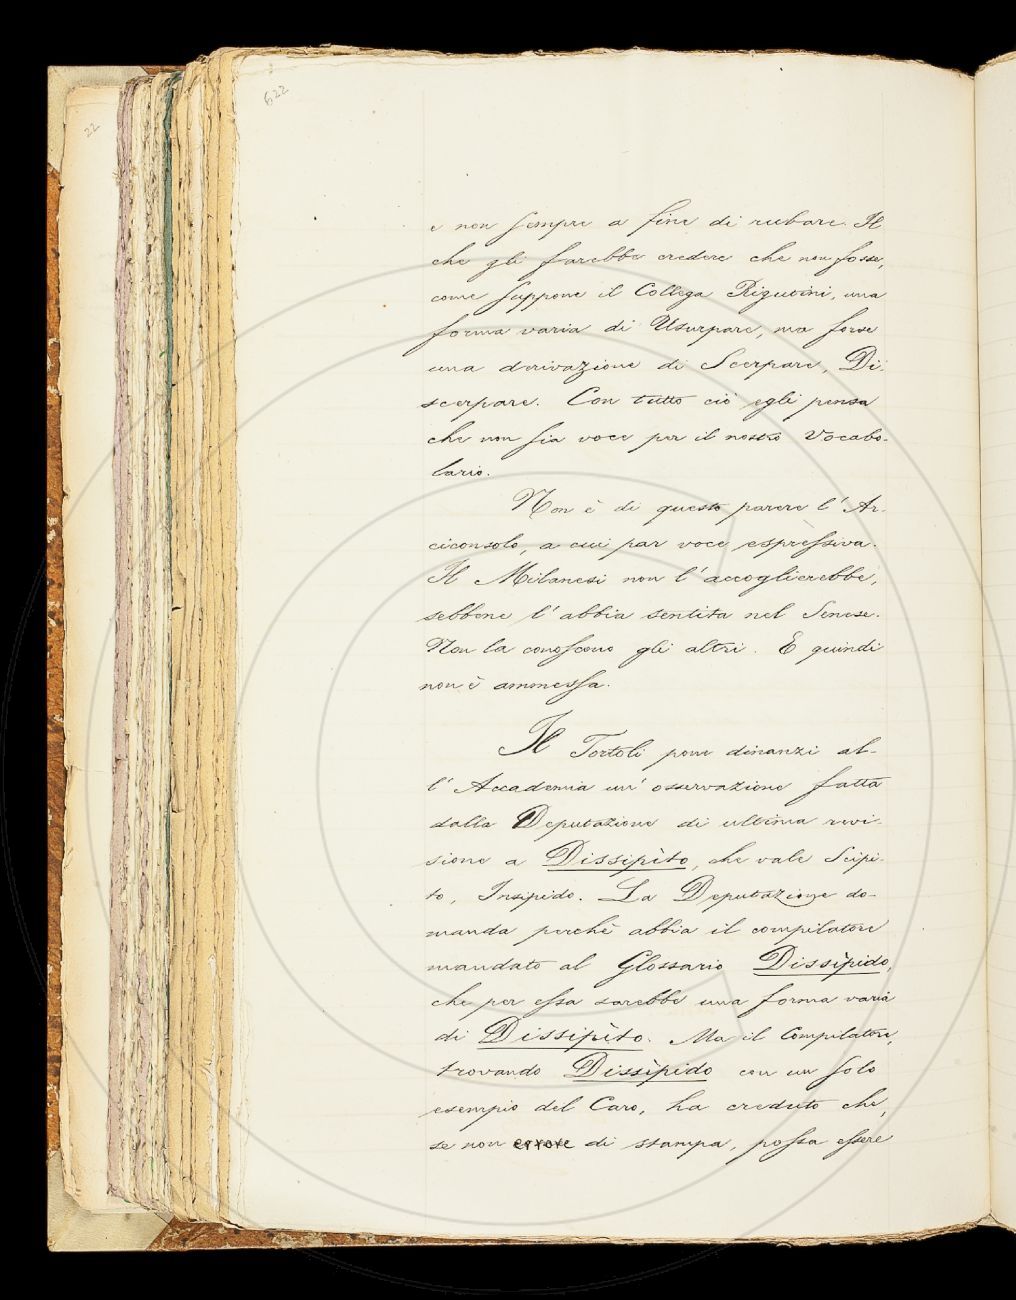 22
622
e non sempre a fine di rubare. Il
che gli farebbe credere che non fosse,
come suppone il Collega Rigutini, una
forma varia di Usurpare, ma forse
una derivazione di Scerpare, Di-
scerpare. Con tutto ciò egli pensa
che non sia voce per il nostro Vocabo-
lario.
Non è di questo parere l'Ar-
ciconsolo, a cui par voce espressiva.
Il Milanesi non l'accoglierebbe,
sebbene l'abbia sentita nel Senese.
Non la conoscono gli altri. E quindi
non è ammessa.
Il Tortoli pone dinanzi al-
l'Accademia un'osservazione fatta
dalla Deputazione di ultima revi-
sione a Dissipìto, che vale Scipi-
to, Insipido. La Deputazione do-
manda perchè abbia il compilatore
mandato al Glossario Dissìpido,
che per essa sarebbe una forma varia
di Dissipìto. Ma il Compilatore,
trovando Dissìpido con un solo
esempio del Caro, ha creduto che,
se non errore di stampa, possa essere